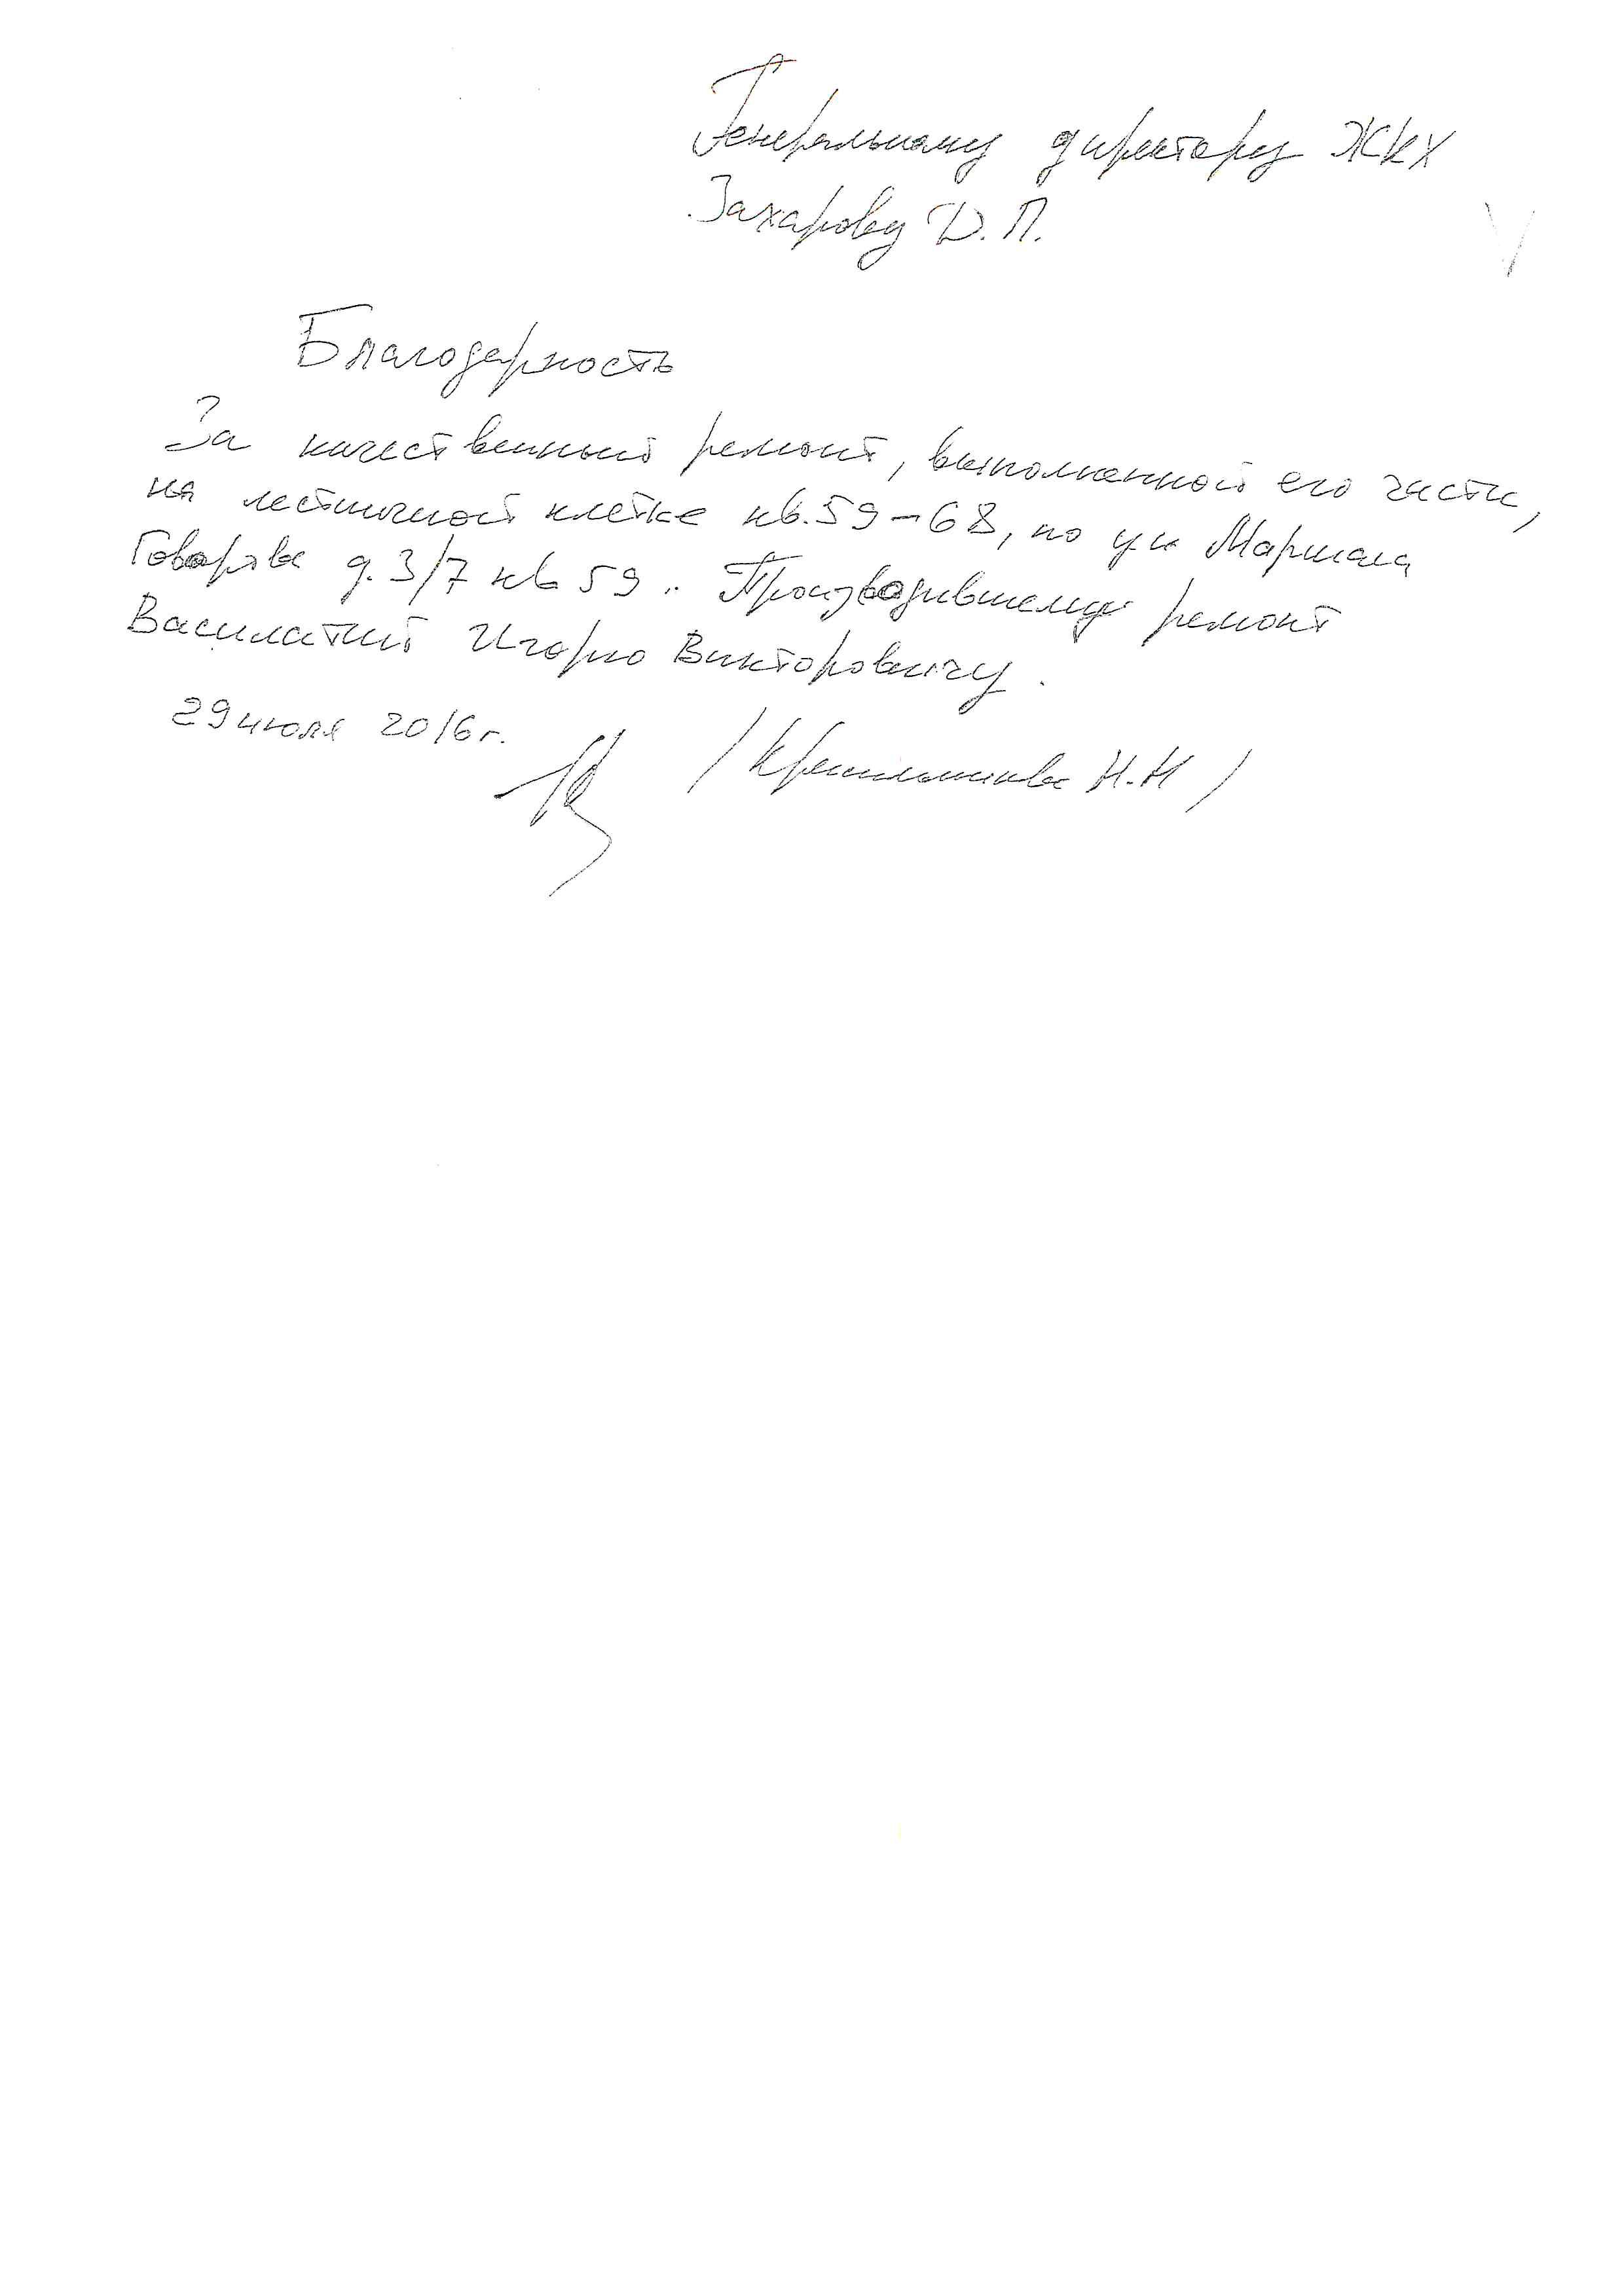 Генеральному директору ЖКХ
Захарову Д. П.
Благодарность
За качественный ремонт, выполненной его части,
на лестничной клетке кв. 59-68, по ул Маршала
Говорова д. 3/7 кв 59.. Производившему ремонт
Василатий Игорю Викторовичу.
29 июля 2016 г.
/ Н. Н /